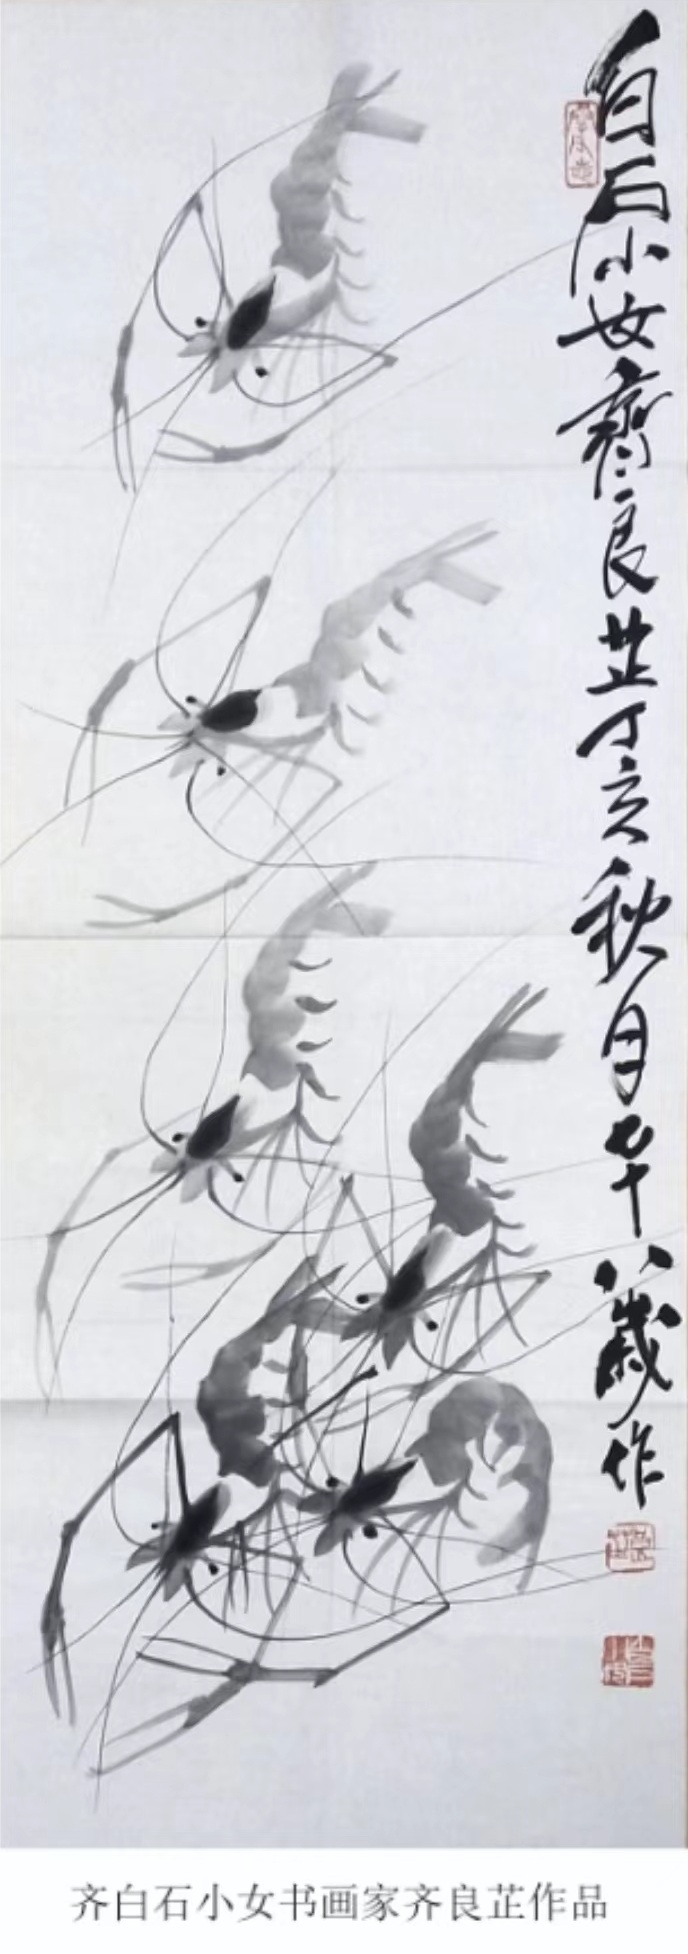 白石小女齊良芷丁亥秋月七十八歲作
齐白石小女书画家齐良芷作品